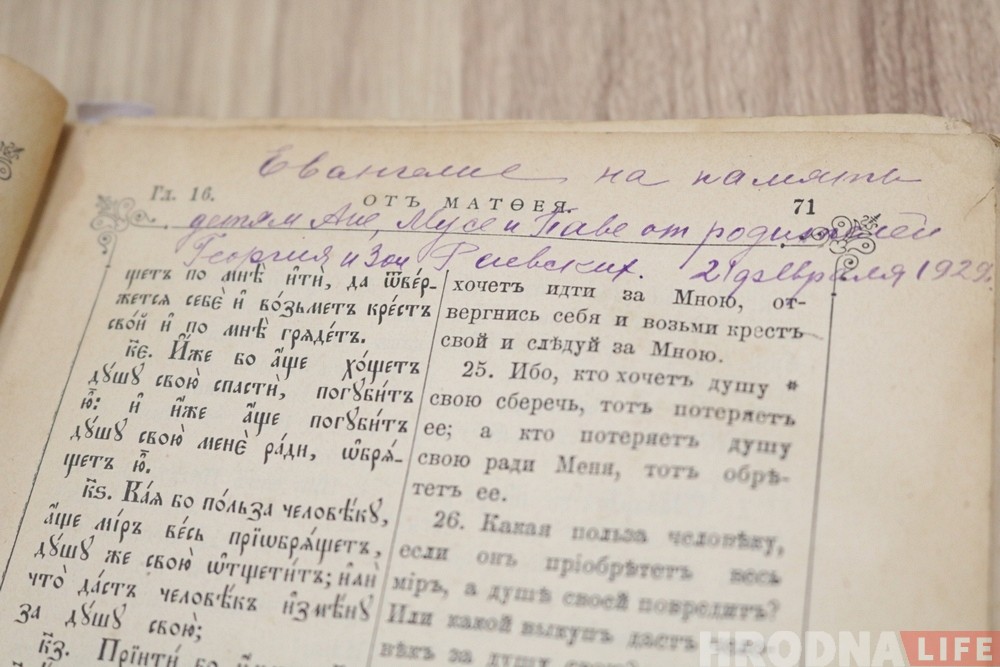 Евангелие на память
Гл. 16.
ОТЪ МАТѲЕЯ.
71
детям Ане, Мусе и Паве от родителей
Георгия и Зои Раевских. 21 февраля 1929г.
щетъ по мнѣ̀ и҆тѝ, да ѿве́р-
жетсѧ себє̀ и҆ во́зьметъ кре́стъ
сво́й и҆ по мнѣ̀ грѧде́тъ.
к҃є. И҆́же бо а҆́ще хо́щетъ
дꙋ́шꙋ свою̀ спастѝ, погꙋби́тъ
ю҆̀: и҆ и҆́же а҆́ще погꙋби́тъ
дꙋ́шꙋ свою̀ менє̀ ра́ди, ѡ҆брѧ́-
щетъ ю҆̀.
к҃ѕ. Ка́ѧ бо по́льза человѣ́кꙋ,
а҆́ще мі́ръ ве́сь прїѡбрѧ́щетъ,
дꙋ́шꙋ же свою̀ ѡ҆тщети́тъ; и҆лѝ
что̀ да́стъ человѣ́къ и҆змѣ́нꙋ
за дꙋ́шꙋ свою̀;
к҃з. Прїитѝ бо
хочетъ идти за Мною, от-
вергнись себя и возьми крестъ
свой и слѣдуй за Мною.
25. Ибо, кто хочетъ душу *
свою сберечь, тотъ потеряетъ
ее; а кто потеряетъ душу
свою ради Меня, тотъ обрѣ-
тетъ ее.
26. Какая польза человѣку,
если онъ пріобрѣтетъ весь
міръ, а душѣ своей повредитъ?
Или какой выкупъ дастъ
вѣкъ за душу свою?
HRODNA LIFE